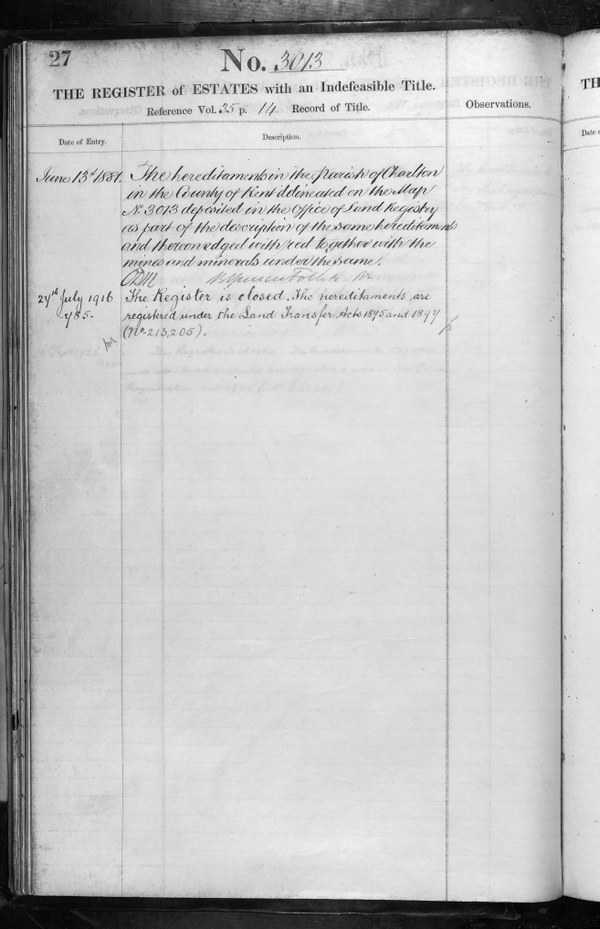 27
No. 3013
THE REGISTER of ESTATES with an Indefeasible Title.
Reference Vol. 35 p. 14 Record of Title.
Observations.
Date of Entry.
Description.
June 13th 1881. The hereditaments in the Parish of Charlton
in the County of Kent delineated on the Map
No. 3013 deposited in the Office of Land Registry
as part of the description of the same hereditaments
and thereon edged with red together with the
mines and minerals under the same.
24th July 1916 The Register is closed. The hereditaments are
registered under the Land Transfer Acts 1875 and 1897
(No. 213,205).
TH
Date o